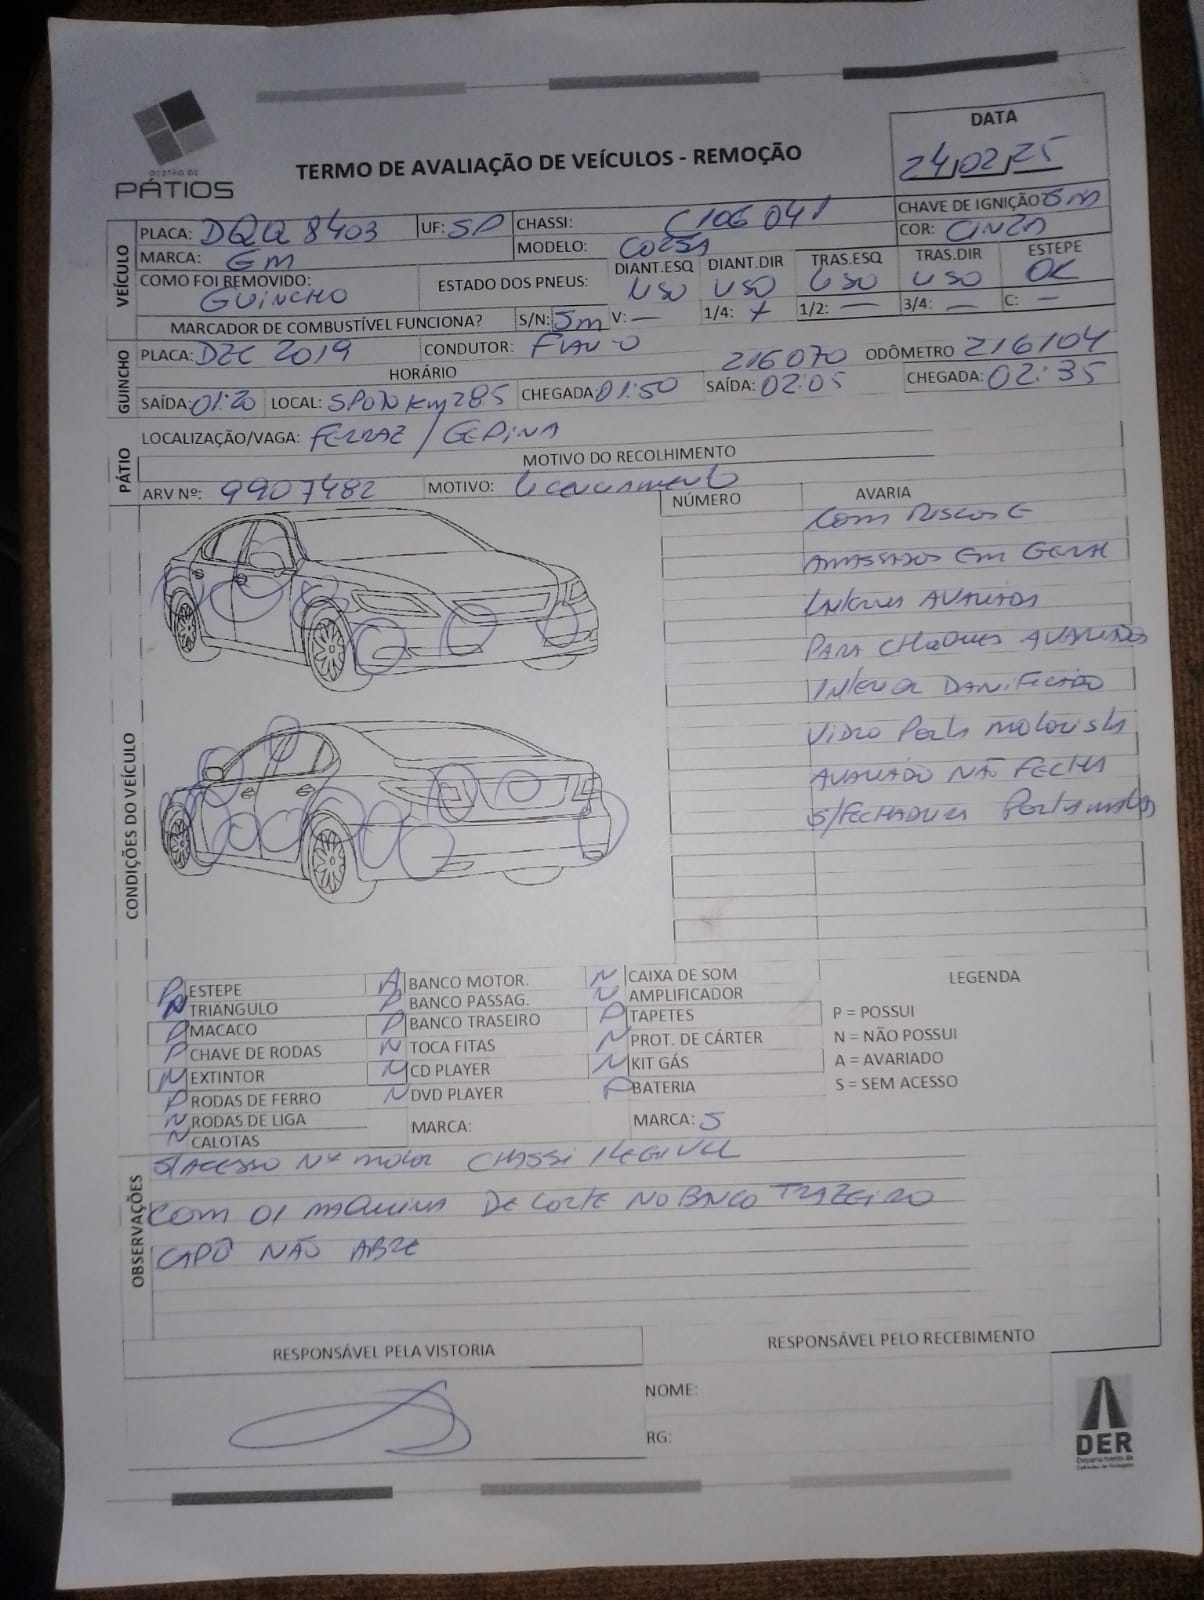 GESTÃO DE
PÁTIOS
TERMO DE AVALIAÇÃO DE VEÍCULOS - REMOÇÃO
DATA
24/02/25
VEÍCULO
PLACA: DQQ 8403 UF: SP CHASSI: C106041 CHAVE DE IGNIÇÃO? Sim
MARCA: GM MODELO: CORSA COR: CINZA
COMO FOI REMOVIDO: GUINCHO
ESTADO DOS PNEUS: DIANT.ESQ USO DIANT.DIR USO TRAS.ESQ USO TRAS.DIR USO ESTEPE OK
MARCADOR DE COMBUSTÍVEL FUNCIONA? S/N: Sim V: — 1/4: + 1/2: — 3/4: — C: —
GUINCHO
PLACA: DZC 2019 CONDUTOR: FLAVIO 216070 ODÔMETRO 216104
HORÁRIO
SAÍDA: 01:20 LOCAL: SP070 Km 285 CHEGADA: 01:50 SAÍDA: 02:05 CHEGADA: 02:35
PÁTIO
LOCALIZAÇÃO/VAGA: FERRAZ /
MOTIVO DO RECOLHIMENTO
ARV Nº: 9907482 MOTIVO: licenciamento
CONDIÇÕES DO VEÍCULO
NÚMERO AVARIA
COM RISCOS E
AMASSADOS EM GERAL
AVARIADA
PARA CHOQUES AVARIADOS
INTERIOR DANIFICADO
VIDRO PORTA MOTORISTA
AVARIADO NÃO FECHA
S/FECHADURA PORTA MALAS
P ESTEPE A BANCO MOTOR. N CAIXA DE SOM LEGENDA
N TRIANGULO P BANCO PASSAG. N AMPLIFICADOR
P MACACO P BANCO TRASEIRO P TAPETES P = POSSUI
P CHAVE DE RODAS N TOCA FITAS N PROT. DE CÁRTER N = NÃO POSSUI
N EXTINTOR N CD PLAYER N KIT GÁS A = AVARIADO
P RODAS DE FERRO N DVD PLAYER P BATERIA S = SEM ACESSO
N RODAS DE LIGA MARCA: MARCA: S
N CALOTAS
OBSERVAÇÕES
S/ACESSO Nº MOTOR CHASSI ILEGIVEL
COM 01 MAQUINA DE CORTE NO BANCO TRAZEIRO
CAPÔ NÃO ABRE
RESPONSÁVEL PELA VISTORIA RESPONSÁVEL PELO RECEBIMENTO
NOME:
RG:
DER
Departamento de
Estradas de Rodagem